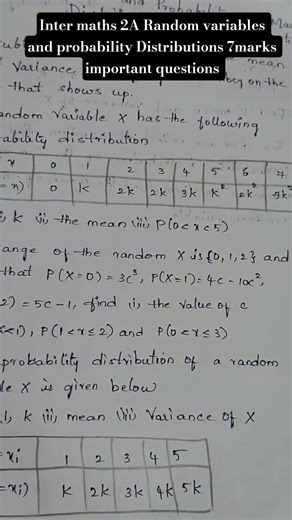 Inter maths 2A Random variables
and probability Distributions 7marks
important questions
variance mean
on the
that shows up.
andom variable X has the following
ability distribution
x 0 1 2 3 4 5 6 7
= x) 0 k 2k 2k 3k k² 2k²
k (ii) the mean (iii) P(0<x<5)
ange of the random X is {0, 1, 2} and
that P(X=0) = 3c³, P(X=1) = 4c - 10c²,
2) = 5c-1, find (i) the value of c
x<1), P(1<x≤2) and P(0<x≤3)
probability distribution of a random
le X is given below
k (ii) mean (iii) Variance of X
= xi 1 2 3 4 5
= xi) k 2k 3k 4k 5k